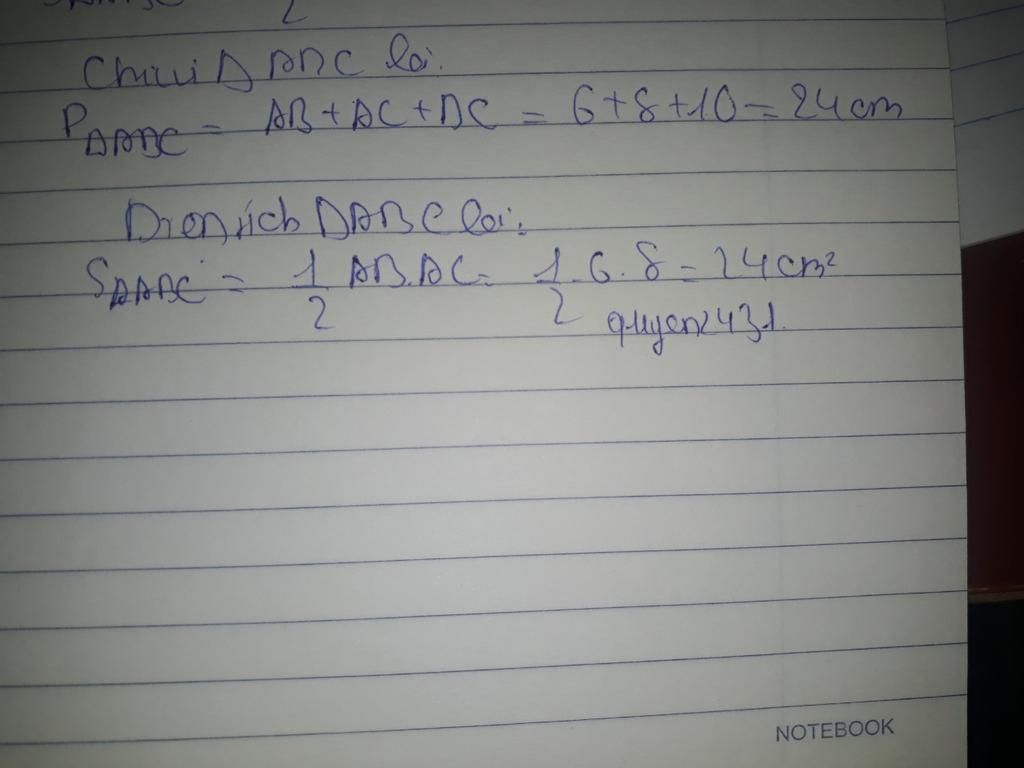 Chu vi Δ ABC là:
P ΔABC = AB + AC + BC = 6 + 8 + 10 = 24 cm
Diện tích ΔABC là:
S ΔABC = 1/2 AB.AC = 1/2 . 6 . 8 = 24 cm²
quyen2431.
NOTEBOOK